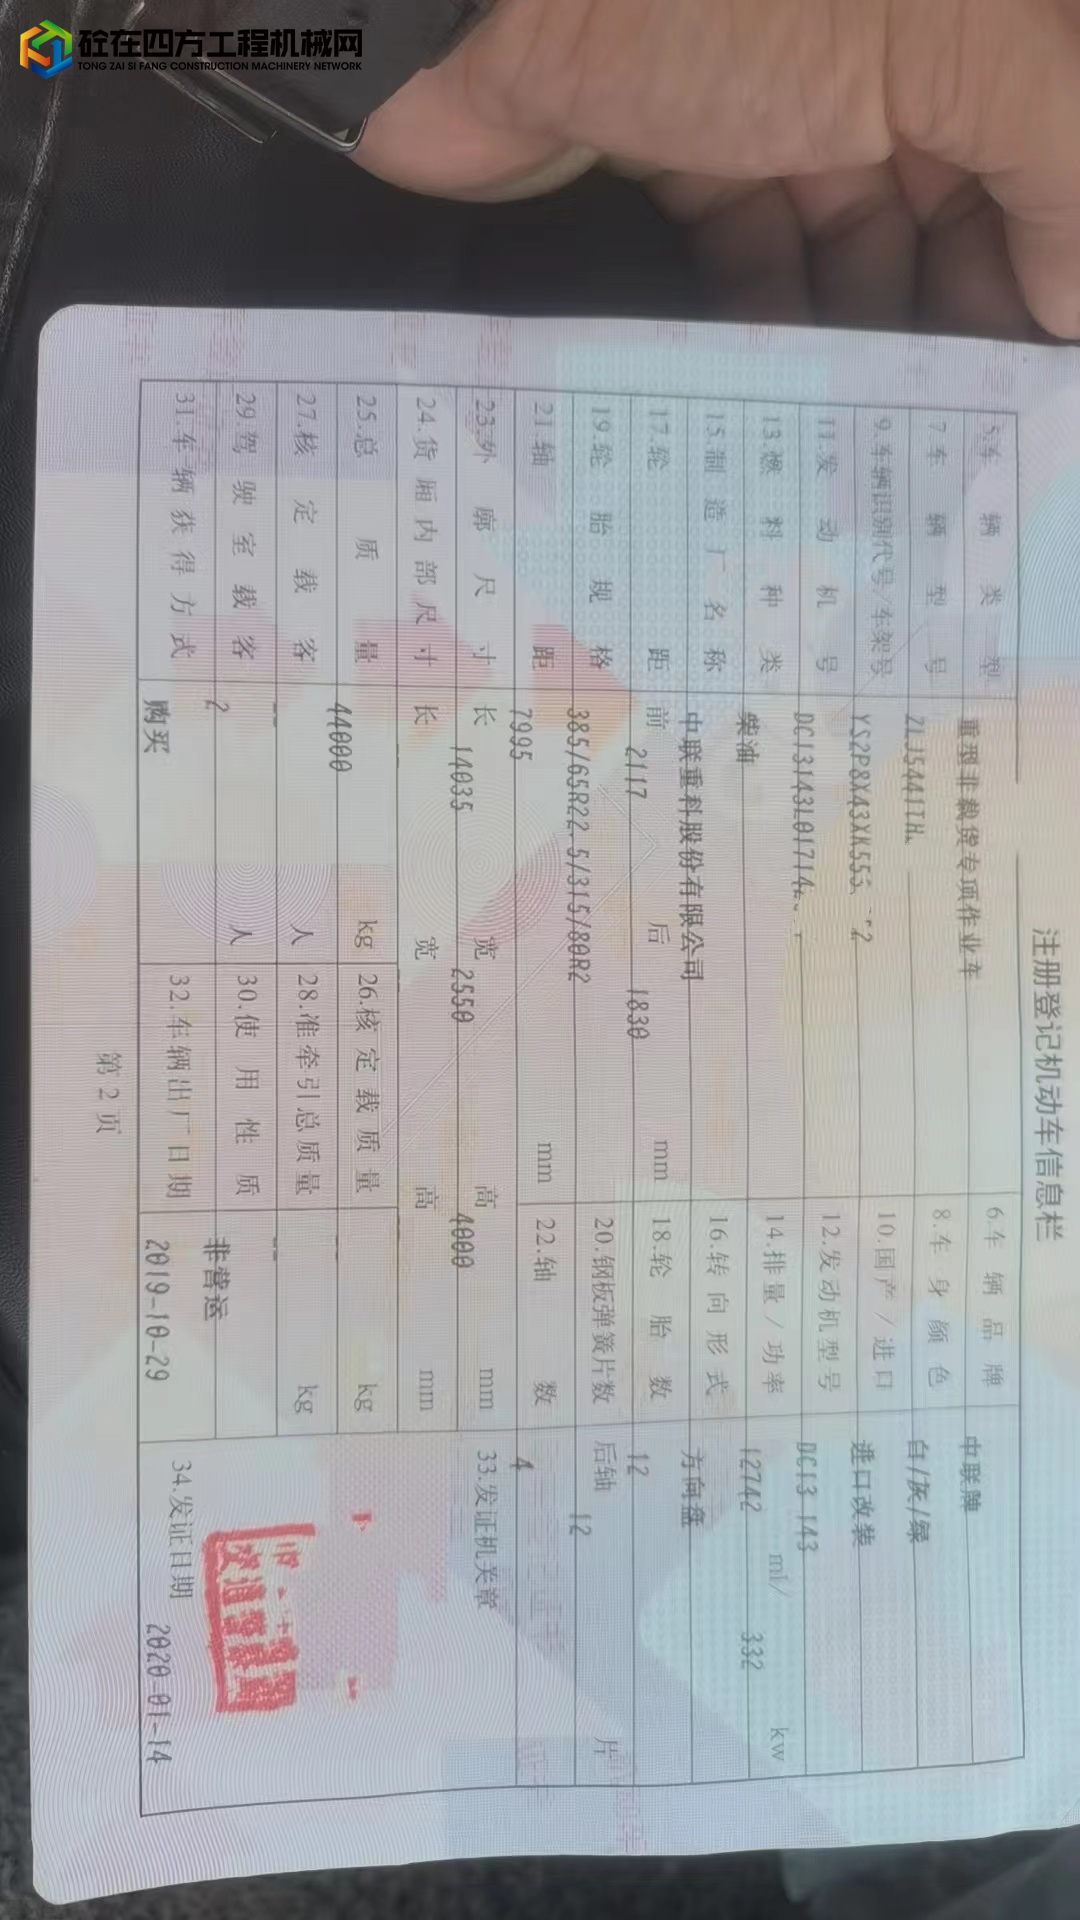 砼在四方工程机械网
TONG ZAI SI FANG CONSTRUCTION MACHINERY NETWORK
注册登记机动车信息栏
5.车辆类型 重型非载货专项作业车 6.车辆品牌 中联牌
7.车辆型号 ZLJ5441TH 8.车身颜色 白/灰/绿
9.车辆识别代号/车架号 YS2P8X43XK55 2 10.国产/进口 进口改装
11.发动机号 DC13143L01714 12.发动机型号 DC13 143
13.燃料种类 柴油 14.排量/功率 12742 ml/ 332 kw
15.制造厂名称 中联重科股份有限公司 16.转向形式 方向盘
17.轮距 前 2117 后 1830 mm 18.轮胎数 12
19.轮胎规格 385/65R22.5/315/80R2 20.钢板弹簧片数 后轴 12 片
21.轴距 7995 mm 22.轴数 4
23.外廓尺寸 长 14035 宽 2550 高 4000 mm 33.发证机关章
24.货厢内部尺寸 长 -- 宽 -- 高 -- mm
25.总质量 44000 kg 26.核定载质量 -- kg
27.核定载客 -- 人 28.准牵引总质量 -- kg
29.驾驶室载客 2 人 30.使用性质 非营运
31.车辆获得方式 购买 32.车辆出厂日期 2019-10-29 34.发证日期 2020-01-14
第2页